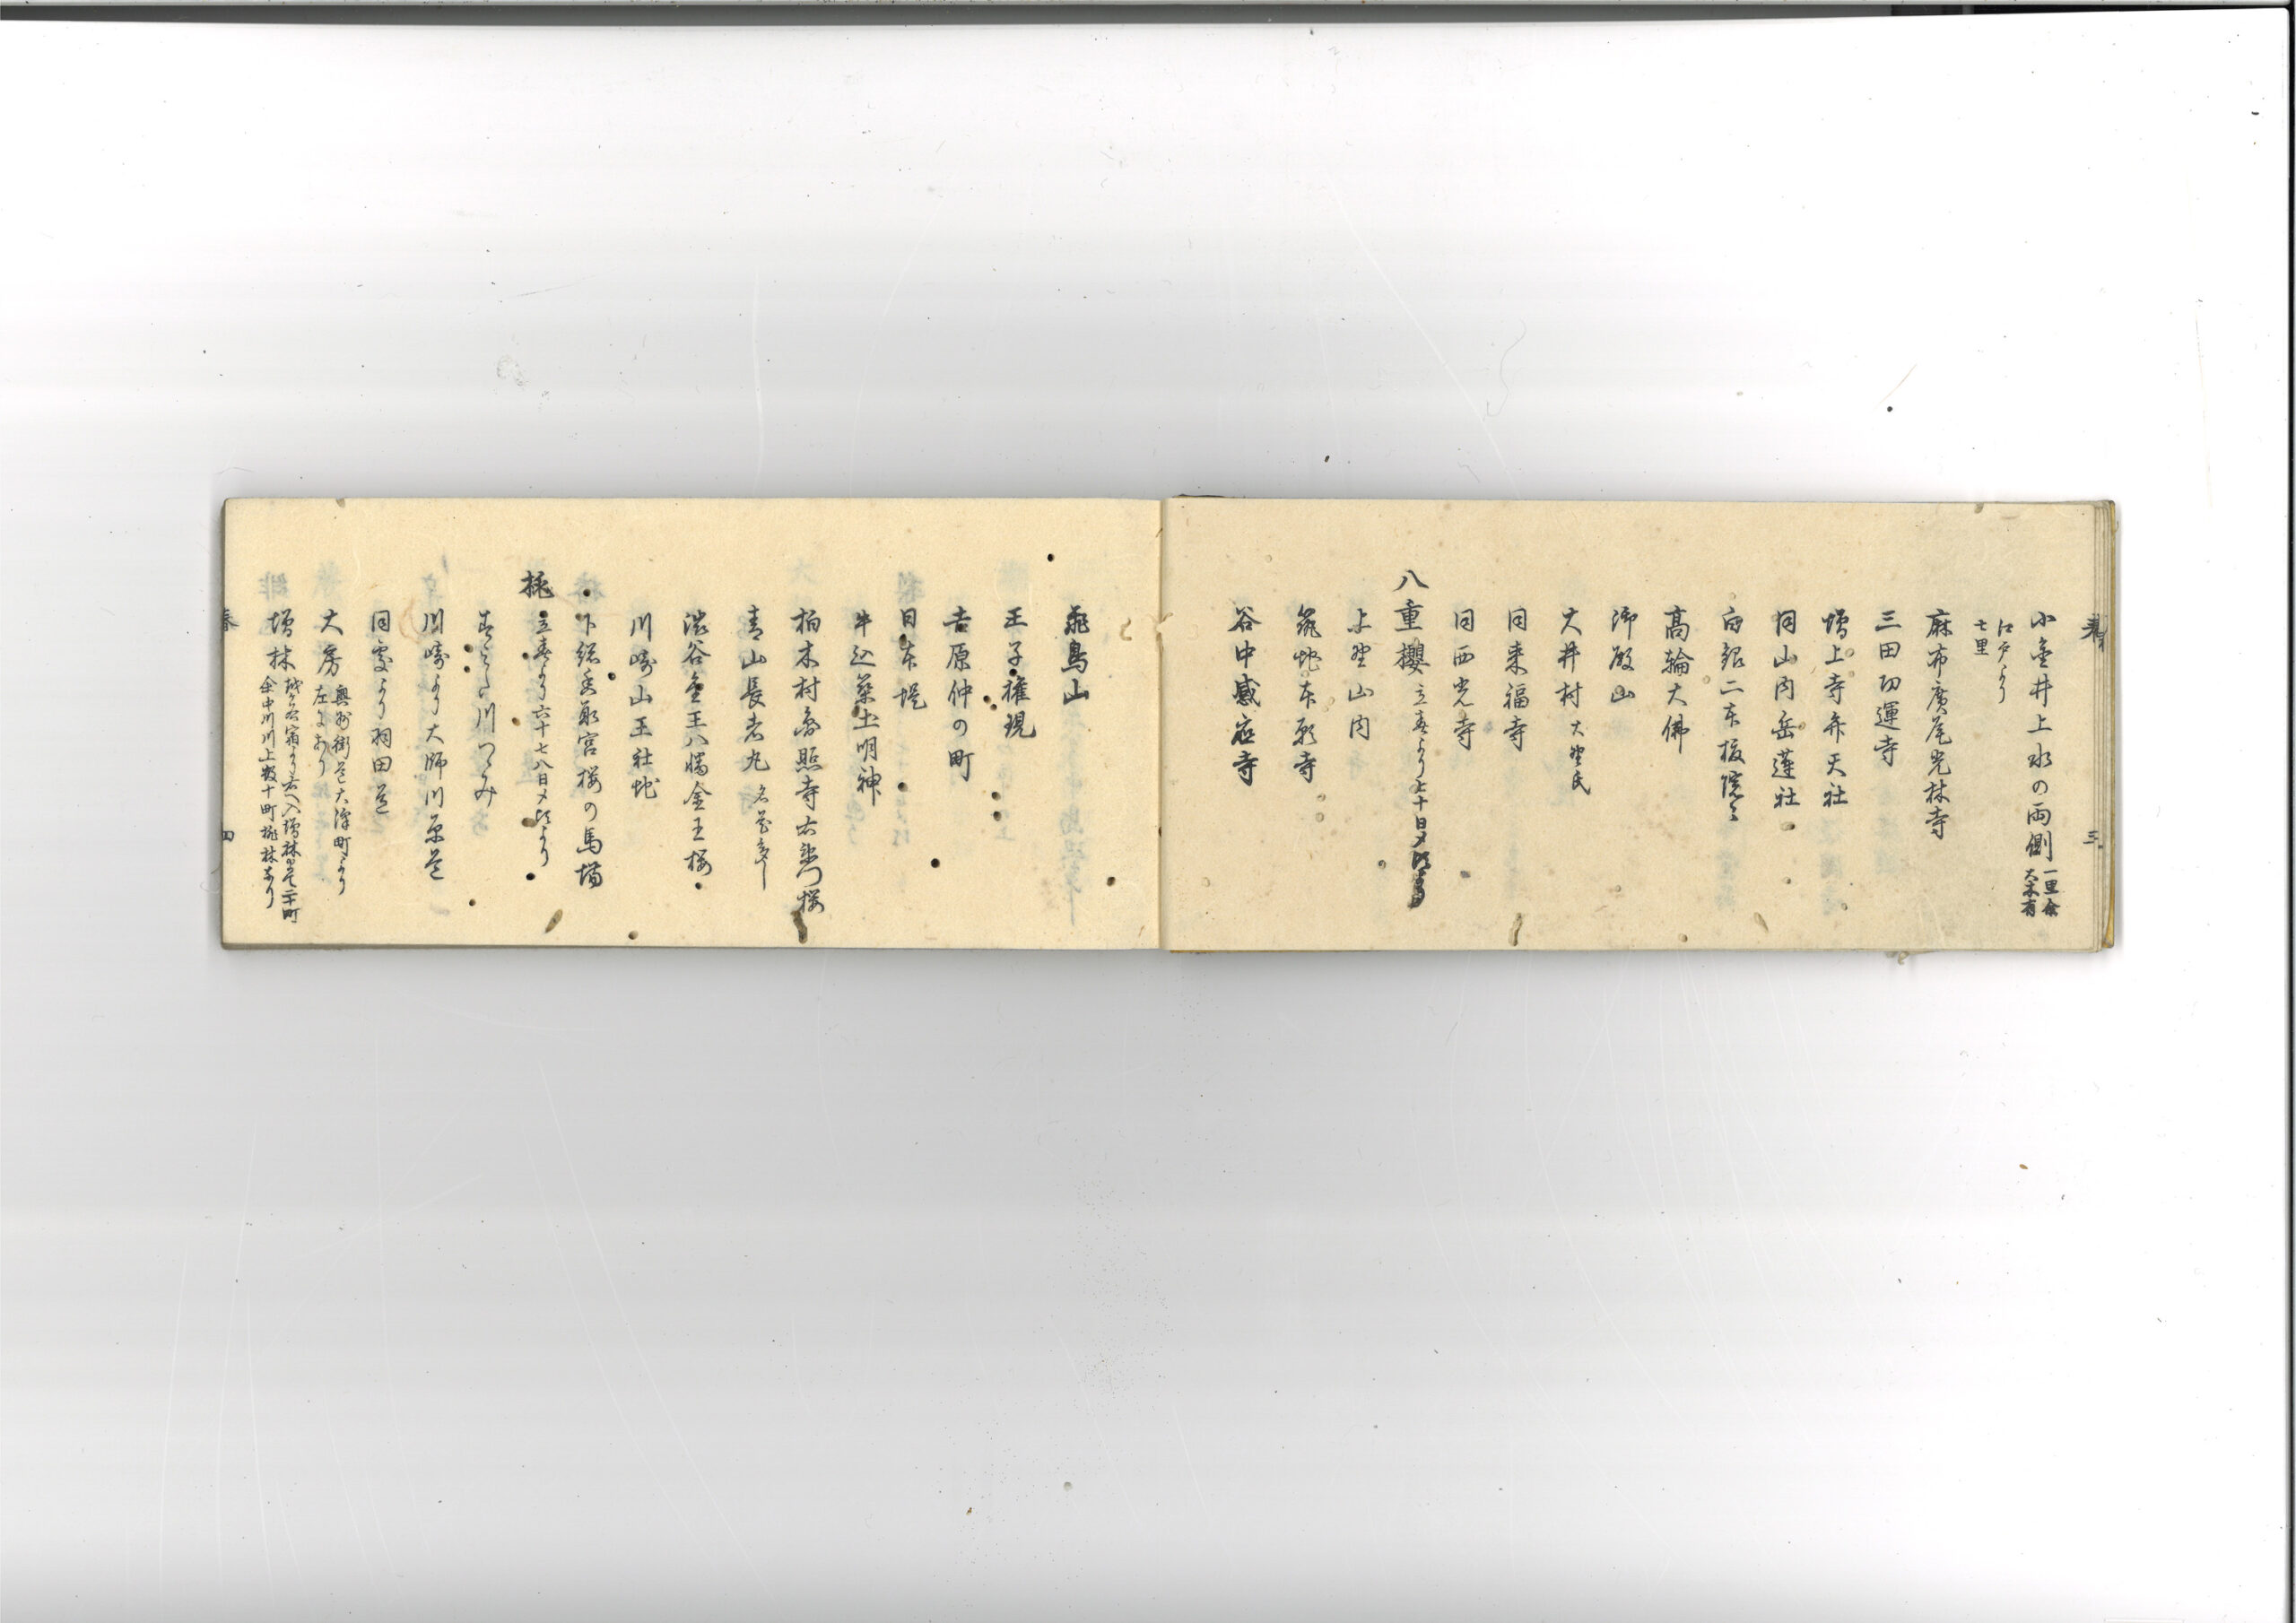 小金井上水の両側 一里余
大木有
江戸より
七里
麻布廣尾光林寺
三田功運寺
増上寺弁天社
同山内岳蓮社
白銀二本榎
高輪大佛
御殿山
大井村 大野氏
同来福寺
同西光寺
八重櫻 立春より七十日メ
上野山内
築地本願寺
谷中感應寺
飛鳥山
王子権現
吉原仲の町
日本堤
牛込築土明神
柏木村圓照寺右衛門桜
青山長者丸
渋谷金王八幡金王桜
川崎山王社地
下総香取宮桜の馬場
桃 立春より六十七八日メ頃より
川つゝみ
川崎より大師川原道
同所より羽田道
大房 奥州街道大澤町より
左にあり
増林 越ヶ谷宿より右へ入増林迄二十町
余中川川上数十町桃林あり
春
三
四